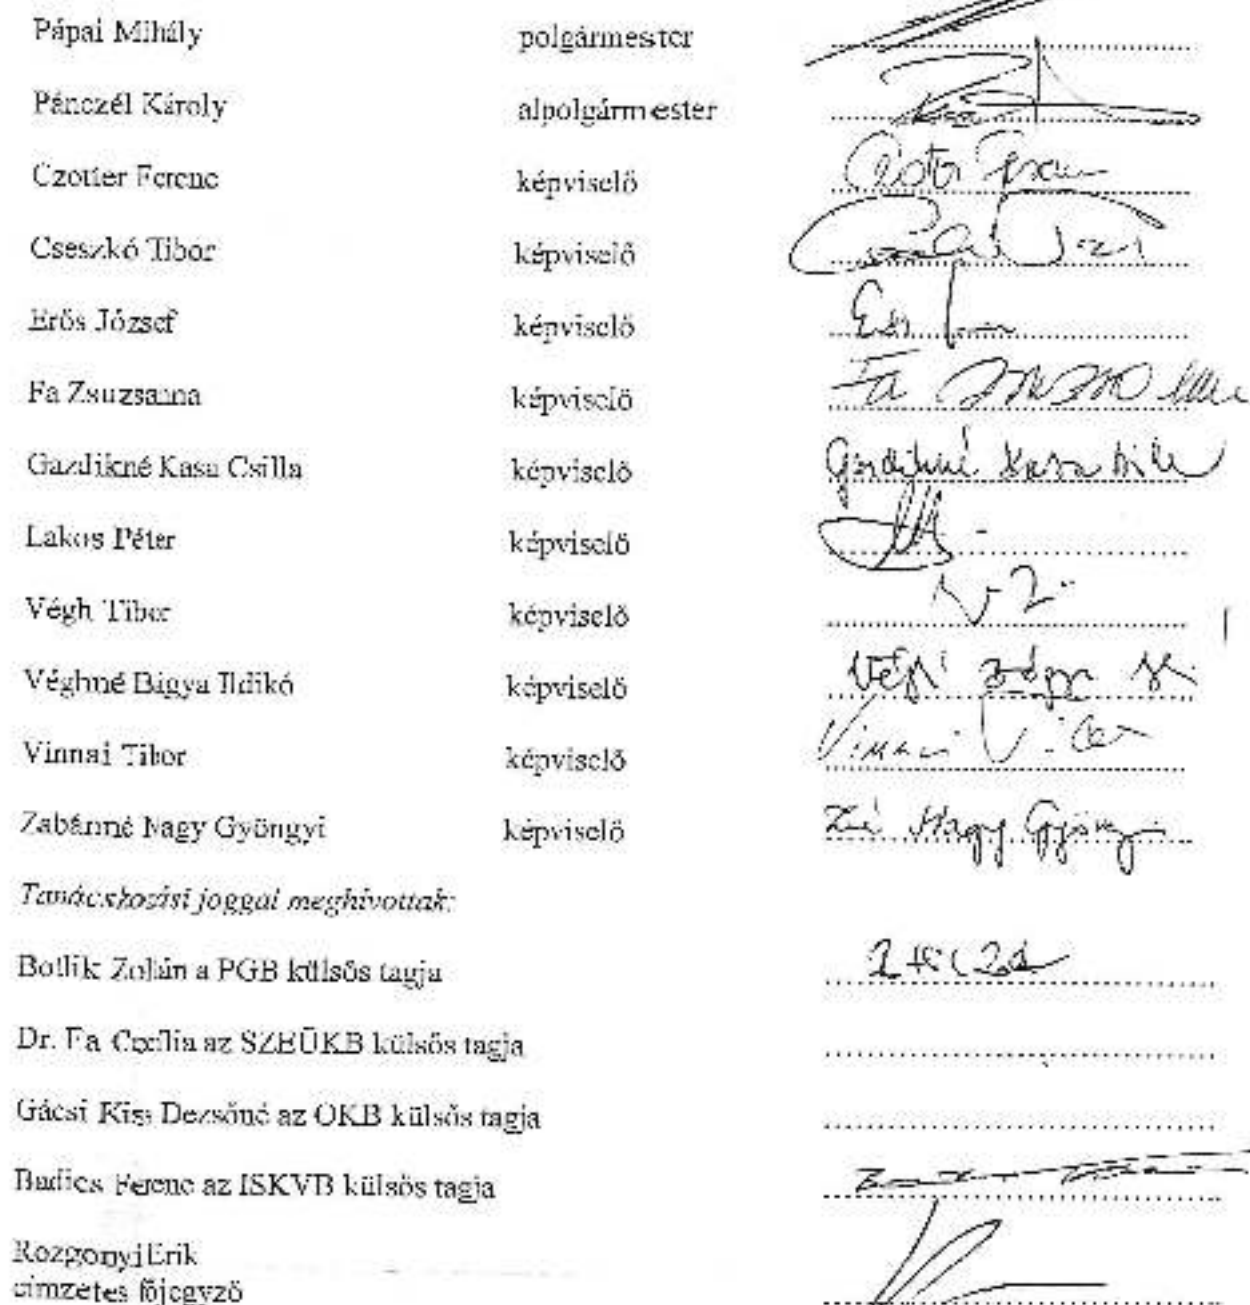 Pápai Mihály polgármester
Pánczél Károly alpolgármester
Czotter Ferenc képviselő
Cseszkó Tibor képviselő
Erős József képviselő
Fa Zsuzsanna képviselő Fa
Gazdikné Kasa Csilla képviselő Gazdikné Kasa
Lakos Péter képviselő
Végh Tibor képviselő
Véghné Bagya Ildikó képviselő
Vinnai Tibor képviselő Vinnai
Zabánné Nagy Gyöngyi képviselő Nagy Gyöngyi
Tanácskozási joggal meghívottak:
Botlik Zoltán a PGB külsős tagja
Dr. Fa Cecília az SZEÜKB külsős tagja
Gácsi Kiss Dezsőné az OKB külsős tagja
Badics Ferenc az ISKVB külsős tagja
Rozgonyi Erik
címzetes főjegyző